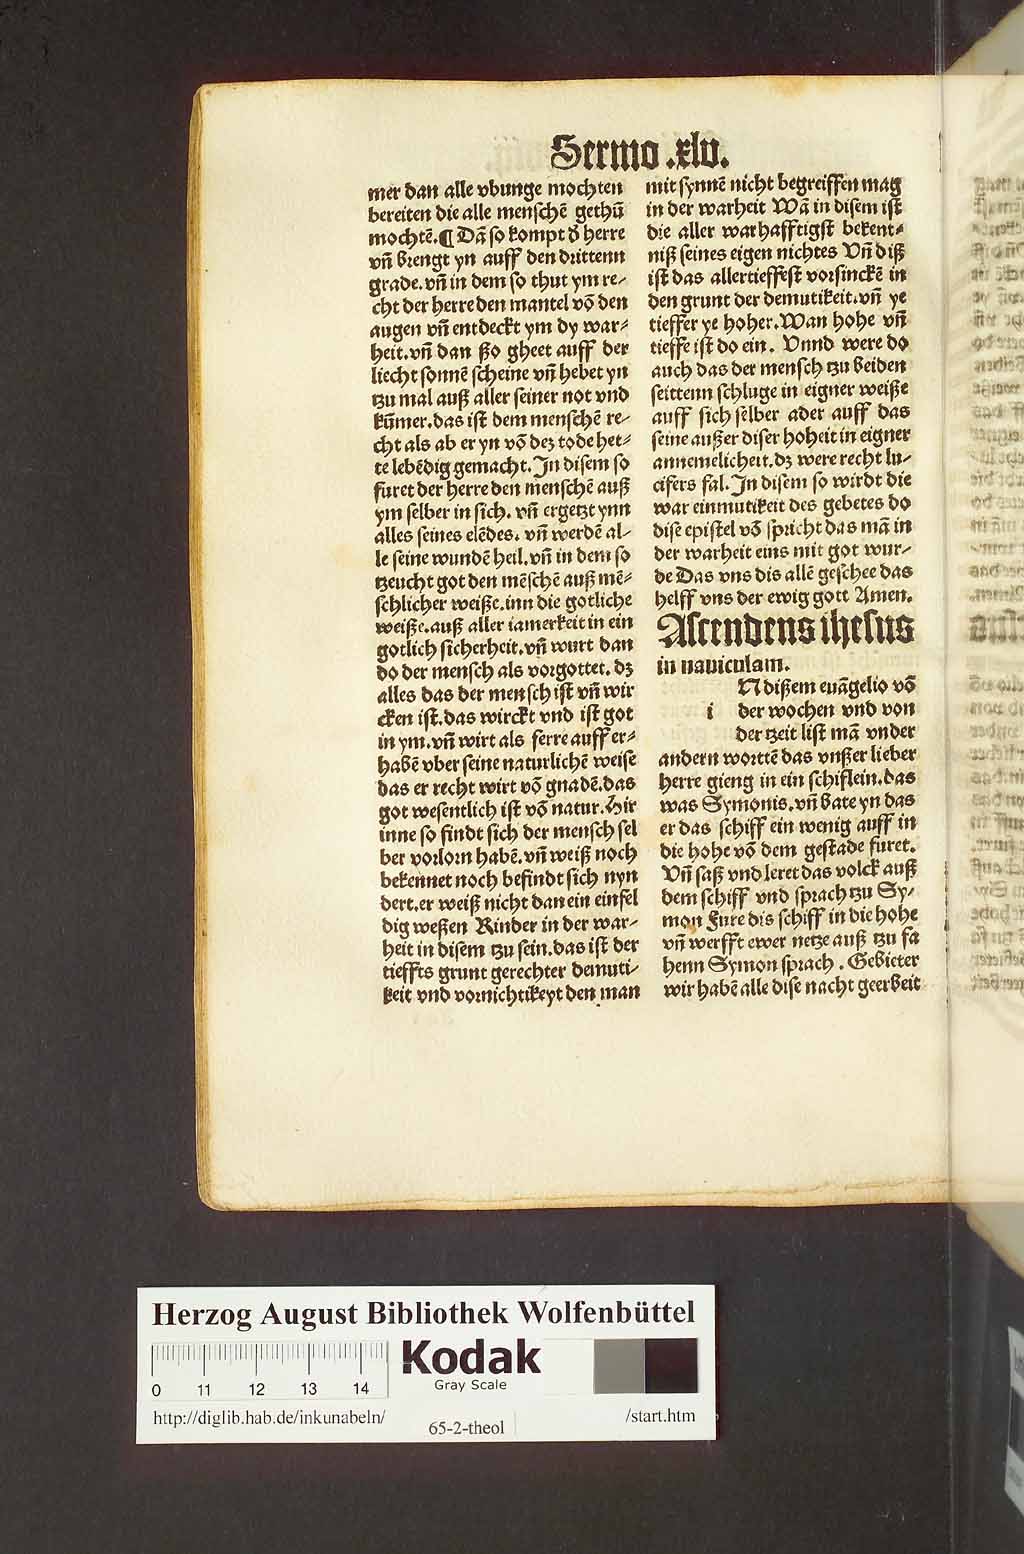 Sermo .xlv.
mer dan alle vbunge mochten
bereiten die alle menschē gethū
mochtē.¶ Dā so kompt d̕ herre
vn̄ brengt yn auff den drittenn
grade. vn̄ in dem so thut ym re-
cht der herre den mantel vō den
augen vn̄ entdeckt ym dy war-
heit. vn̄ dan ßo gheet auff der
liecht sonnē scheine vn̄ hebet yn
tzu mal auß aller seiner not vnd
kūmer. das ist dem menschē re-
cht als ab er yn vō deʒ tode het-
te lebēdig gemacht. In disem so
furet der herre den menschē auß
ym selber in sich. vn̄ ergetzt ynn
alles seines elēdes. vn̄ werdē al-
le seine wundē heil. vn̄ in dem so
tzeucht got den mēschē auß mē-
schlicher weiße. inn die gotliche
weiße. auß aller iamerkeit in ein
gotlich sicherheit. vn̄ wurt dan
do der mensch als vorgottet. dʒ
alles das der mensch ist vn̄ wir
cken ist. das wirckt vnd ist got
in ym. vn̄ wirt als ferre auff er-
habē vber seine naturlichē weise
das er recht wirt vō gnadē. das
got wesentlich ist vō natur. Hir
inne so findt sich der mensch sel
ber vorlorn habē. vn̄ weiß noch
bekennet noch befindt sich nyn
dert. er weiß nicht dan ein einfel
dig weßen Kinder in der war-
heit in disem tzu sein. das ist der
tieffts grunt gerechter demuti-
keit vnd vornichtikeyt den man
mit synnē nicht begreiffen mag
in der warheit Wā in disem ist
die aller warhafftigst bekent-
niß seines eigen nichtes Vn̄ diß
ist das allertieffest vorsinckē in
den grunt der demutikeit. vn̄ ye
tieffer ye hoher. Wan hohe vn̄
tieffe ist do ein. Vnnd were do
auch das der mensch tzu beiden
seittenn schluge in eigner weiße
auff sich selber ader auff das
seine außer diser hoheit in eigner
annemelicheit. dʒ were recht lu-
cifers fal. In disem so wirdt die
war einmutikeit des gebetes do
dise epistel vō spricht das mā in
der warheit eins mit got wur-
de Das vns dis allē geschee das
helff vns der ewig gott Amen.
Ascendens ihesus
in nauiculam.
N dißem euāgelio vō
i der wochen vnd von
der tzeit list mā vnder
andern worttē das vnßer lieber
herre gieng in ein schiflein. das
was Symonis. vn̄ bate yn das
er das schiff ein wenig auff in
die hohe vō dem gestade furet.
Vn̄ saß vnd leret das volck auß
dem schiff vnd sprach tzu Sy-
mon Fure dis schiff in die hohe
vn̄ werfft ewer netze auß tzu fa
henn Symon sprach. Gebieter
wir habē alle dise nacht geerbeit
Herzog August Bibliothek Wolfenbüttel
Kodak
Gray Scale
0 11 12 13 14
http://diglib.hab.de/inkunabeln/
65-2-theol
/start.htm